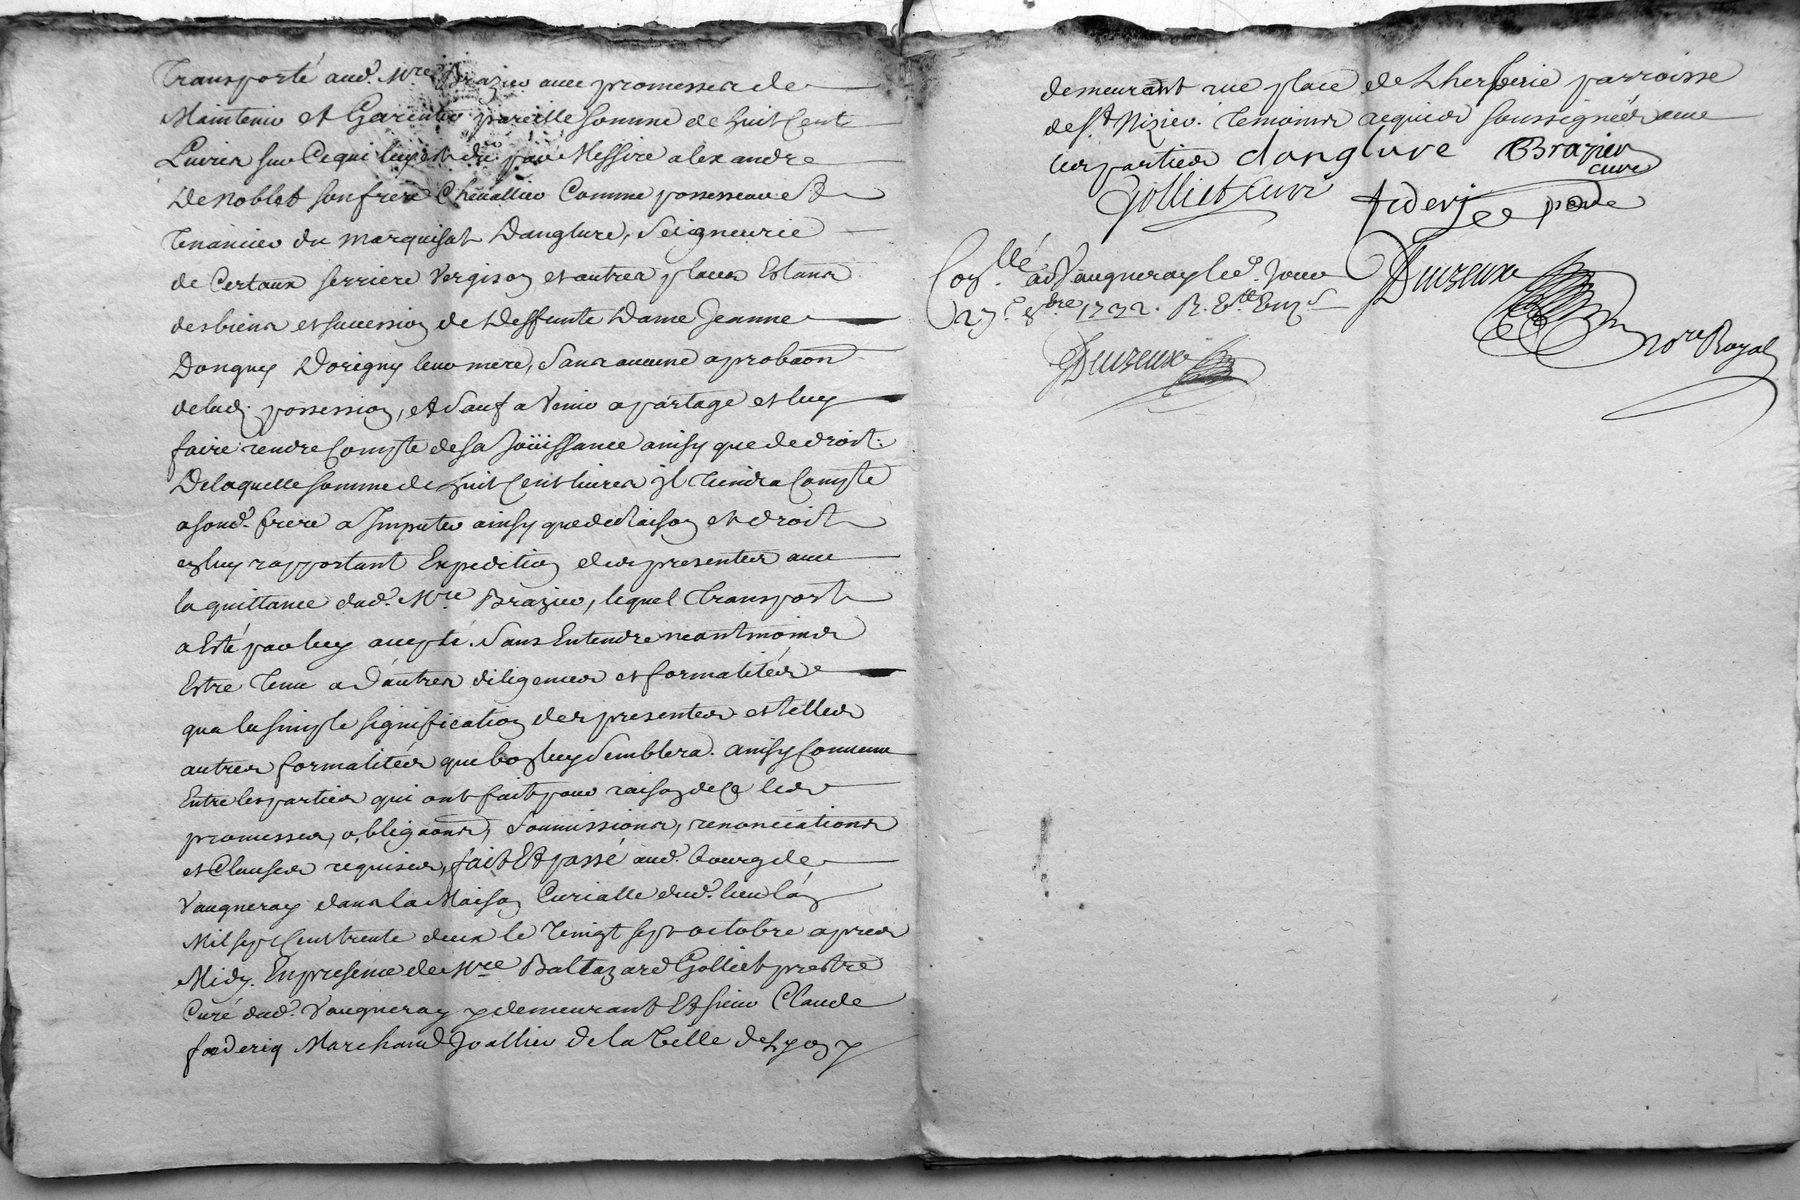 Transporté aud. Mre Brazier avec promesses de
Maintenir et Garentir pareille somme de huit Cent
Livres sur Cequi luy est dû par Messire alexandre
De Noblet son frere Chevallier Comme possesseur et
Tenancier du marquisat Danglure, Seigneurie
de Certaux serriere Vergison et autres places Estans
des biens et succession de deffunte Dame Jeanne
Dongny Dorigny leur mere, Sans aucune aprobaon
de lad. possession, et Sauf a Venir a partage et luy
faire rendre Compte de sa Joüissance ainsy que de droit.
De laquelle somme de huit Cent livres il Tiendra Compte
a sond. frere a Imputer ainsy que de raison et droit
en luy rapportant Expedition des presentes avec
la quittance dud. Mre Brazier, lequel Transport
a Esté par luy accepté. Sans Entendre neantmoins
Estre Tenu a D'autres diligences et formalités
qua la simple signification des presentes et telles
autres formalités que bon luy Semblera. ainsy Convenu
Entre les parties qui ont fait pour raison de ce les
promesses, obligaons, Soumissions, renonciations
et Clauses requises, fait Et passé aud. bourg de
Vaugneray dans la Maison Curialle dud. lieu l'an
Mil sept Cent trente deux le Vingt sept octobre apres
Midy. En presence de Mre Baltazard Golliet prestre
Curé dud. Vaugneray y demeurant Et sieur Claude
foederiq Marchand Joallier de la Ville de Lyon y
demeurant rue place de Lherberie parroisse
de St Nizier. Temoins requis soussignés avec
les parties danglure Brazier
curé
Golliet Curé
Coñllé a Vaugneray le d. Jour
27e 8bre 1732.
Duzeux
Nore Royal
Duzeux